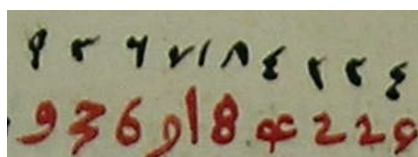 ٩٣٦٧١٨٤٢٢٤
936७18४22